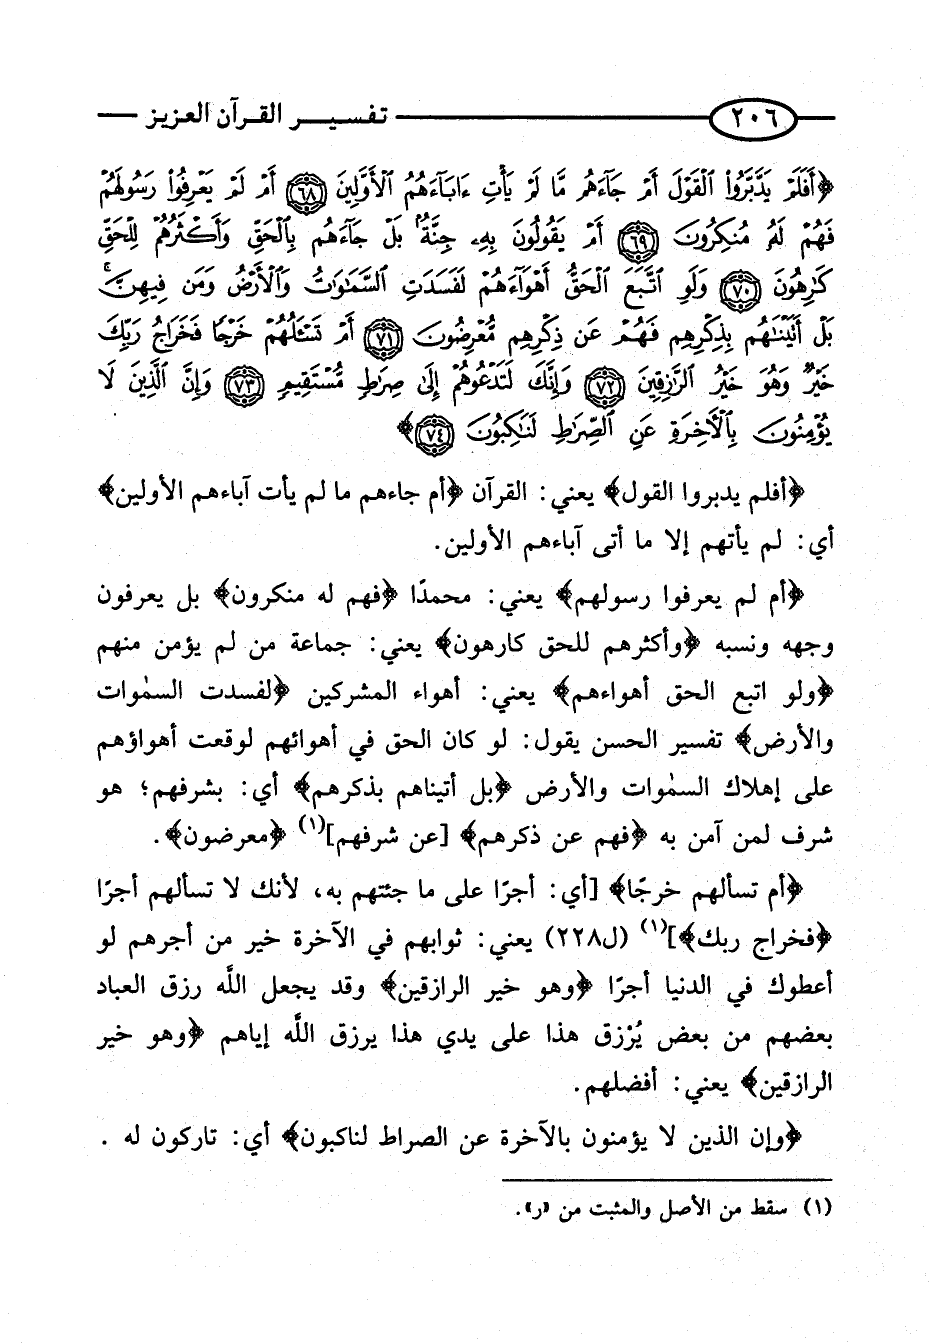 ٢٠٦ تفسير القرآن العزيز
﴿أَفَلَمْ يَدَّبَّرُوا۟ ٱلْقَوْلَ أَمْ جَآءَهُم مَّا لَمْ يَأْتِ ءَابَآءَهُمُ ٱلْأَوَّلِينَ ﴿٦٨﴾ أَمْ لَمْ يَعْرِفُوا۟ رَسُولَهُمْ
فَهُمْ لَهُۥ مُنكِرُونَ ﴿٦٩﴾ أَمْ يَقُولُونَ بِهِۦ جِنَّةٌۢ بَلْ جَآءَهُم بِٱلْحَقِّ وَأَكْثَرُهُمْ لِلْحَقِّ
كَٰرِهُونَ ﴿٧٠﴾ وَلَوِ ٱتَّبَعَ ٱلْحَقُّ أَهْوَآءَهُمْ لَفَسَدَتِ ٱلسَّمَٰوَٰتُ وَٱلْأَرْضُ وَمَن فِيهِنَّ ۚ
بَلْ أَتَيْنَٰهُم بِذِكْرِهِمْ فَهُمْ عَن ذِكْرِهِم مُّعْرِضُونَ ﴿٧١﴾ أَمْ تَسْـَٔلُهُمْ خَرْجًا فَخَرَاجُ رَبِّكَ
خَيْرٌ وَهُوَ خَيْرُ ٱلرَّٰزِقِينَ ﴿٧٢﴾ وَإِنَّكَ لَتَدْعُوهُمْ إِلَىٰ صِرَٰطٍ مُّسْتَقِيمٍ ﴿٧٣﴾ وَإِنَّ ٱلَّذِينَ لَا
يُؤْمِنُونَ بِٱلْـَٔاخِرَةِ عَنِ ٱلصِّرَٰطِ لَنَٰكِبُونَ ﴿٧٤﴾﴾
﴿أفلم يدبروا القول﴾ يعني: القرآن ﴿أم جاءهم ما لم يأت آباءهم الأولين﴾
أي: لم يأتهم إلا ما أتى آباءهم الأولين.
﴿أم لم يعرفوا رسولهم﴾ يعني: محمدًا ﴿فهم له منكرون﴾ بل يعرفون
وجهه ونسبه ﴿وأكثرهم للحق كارهون﴾ يعني: جماعة من لم يؤمن منهم
﴿ولو اتبع الحق أهواءهم﴾ يعني: أهواء المشركين ﴿لفسدت السمٰوات
والأرض﴾ تفسير الحسن يقول: لو كان الحق في أهوائهم لوقعت أهواؤهم
على إهلاك السمٰوات والأرض ﴿بل أتيناهم بذكرهم﴾ أي: بشرفهم؛ هو
شرف لمن آمن به ﴿فهم عن ذكرهم﴾ [عن شرفهم](١) ﴿معرضون﴾.
﴿أم تسألهم خرجًا﴾ [أي: أجرًا على ما جئتهم به، لأنك لا تسألهم أجرًا
﴿فخراج ربك﴾](١) (ل٢٢٨) يعني: ثوابهم في الآخرة خير من أجرهم لو
أعطوك في الدنيا أجرًا ﴿وهو خير الرازقين﴾ وقد يجعل اللَّه رزق العباد
بعضهم من بعض يُرْزق هذا على يدي هذا يرزق اللَّه إياهم ﴿وهو خير
الرازقين﴾ يعني: أفضلهم.
﴿وإن الذين لا يؤمنون بالآخرة عن الصراط لناكبون﴾ أي: تاركون له .
(١) سقط من الأصل والمثبت من «ر».